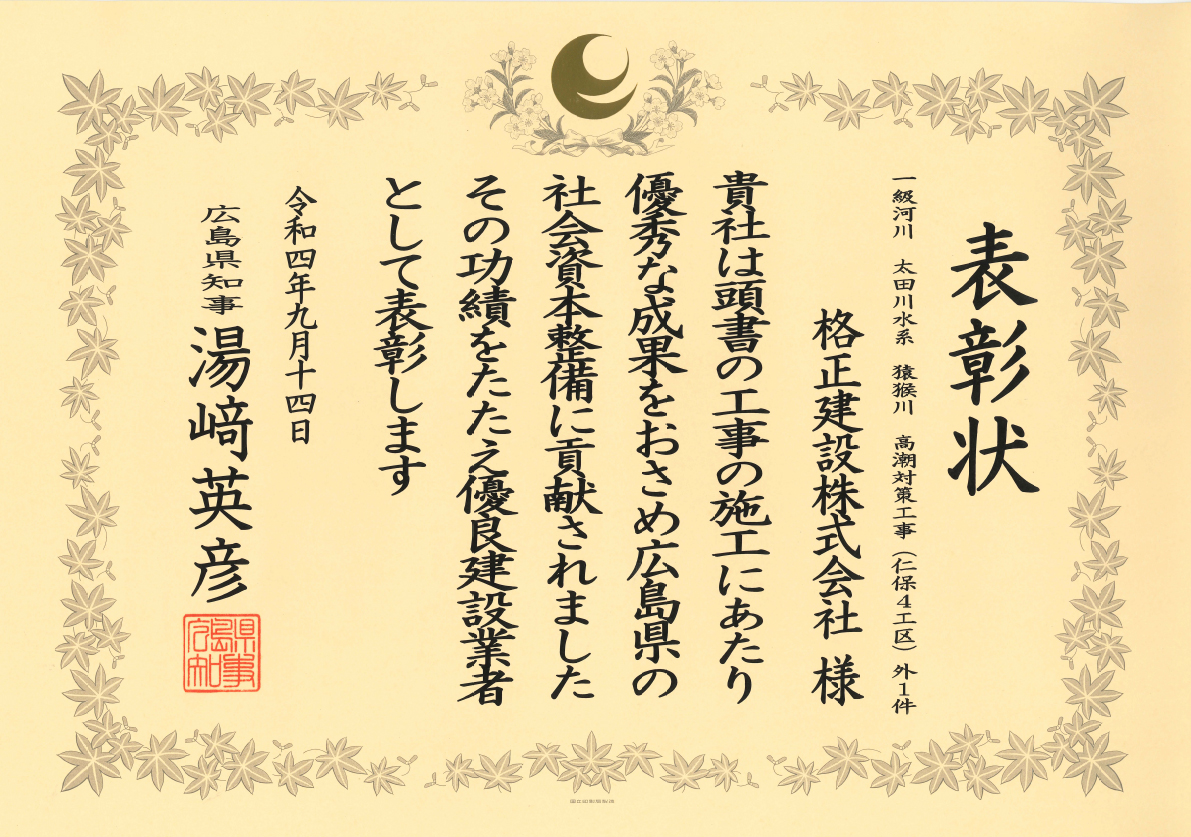 表彰状
一級河川　太田川水系　猿猴川　高潮対策工事（仁保４工区）外１件
格正建設株式会社　様
貴社は頭書の工事の施工にあたり
優秀な成果をおさめ広島県の
社会資本整備に貢献されました
その功績をたたえ優良建設業者
として表彰します
令和四年九月十四日
広島県知事　湯﨑英彦
広島県知事